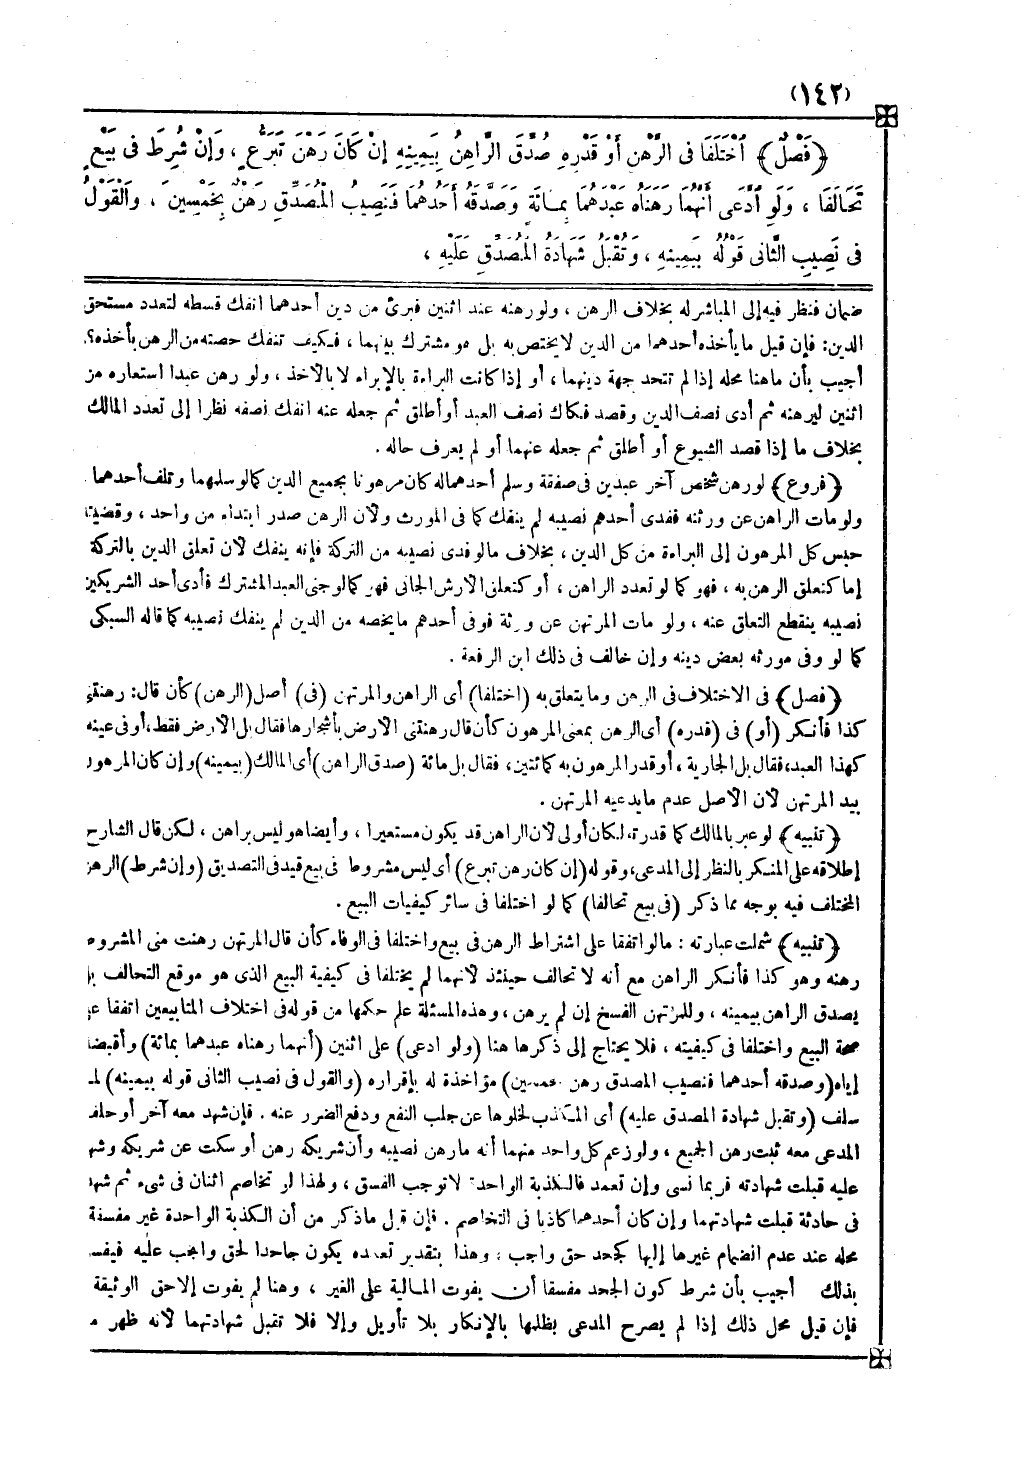 (١٤٢)
﴿فَصْلٌ﴾ اخْتَلَفَا فِى الرَّهْنِ أَوْ قَدْرِهِ صُدِّقَ الرَّاهِنُ بِيَمِينِهِ إِنْ كَانَ رَهْنَ تَبَرُّعٍ ، وَإِنْ شُرِطَ فِى بَيْعٍ
تَحَالَفَا ، وَلَوِ ادَّعَى أَنَّهُمَا رَهَنَاهُ عَبْدَهُمَا بِمِائَةٍ وَصَدَّقَهُ أَحَدُهُمَا فَنَصِيبُ الْمُصَدِّقِ رَهْنٌ بِخَمْسِينَ ، وَالْقَوْلُ
فِى نَصِيبِ الثَّانِى قَوْلُهُ بِيَمِينِهِ ، وَتُقْبَلُ شَهَادَةُ الْمُصَدِّقِ عَلَيْهِ ،
ضمان فنظر فيه إلى المباشر له بخلاف الرهن ، ولو رهنه عند اثنين فبرئ من دين أحدهما انفك قسطه لتعدد مستحق
الدين: فإن قيل ما يأخذه أحدهما من الدين لا يختص به بل هو مشترك بينهما ، فكيف تنفك حصته من الرهن بأخذه؟.
أجيب بأن ما هنا محله إذا لم تتحد جهة دينهما ، أو إذا كانت البراءة بالإبراء لا بالأخذ ، ولو رهن عبدا استعاره من
اثنين ليرهنه ثم أدى نصف الدين وقصد فكاك نصف العبد أو أطلق ثم جعله عنه انفك نصفه نظرا إلى تعدد المالك
بخلاف ما إذا قصد الشيوع أو أطلق ثم جعله عنهما أو لم يعرف حاله .
﴿فروع﴾ لو رهن شخص آخر عبدين فى صفقة وسلم أحدهما له كان مرهونا بجميع الدين كما لو سلمهما وتلف أحدهما .
ولو مات الراهن عن ورثته ففدى أحدهم نصيبه لم ينفك كما فى المورث ولأن الرهن صدر ابتداء من واحد ، وقضيته
حبس كل المرهون إلى البراءة من كل الدين ، بخلاف ما لو فدى نصيبه من التركة فإنه ينفك لأن تعلق الدين بالتركة
إما كتعلق الرهن به ، فهو كما لو تعدد الراهن ، أو كتعلق الأرش الجانى فهو كما لو جنى العبد المشترك فأدى أحد الشريكين
نصيبه ينقطع التعلق عنه ، ولو مات المرتهن عن ورثة فوفى أحدهم ما يخصه من الدين لم ينفك نصيبه كما قاله السبكى
كما لو وفى مورثه بعض دينه وإن خالف فى ذلك ابن الرفعة .
﴿فصل﴾ فى الاختلاف فى الرهن وما يتعلق به (اختلفا) أى الراهن والمرتهن (فى) أصل (الرهن) كأن قال: رهنتنى
كذا فأنكر (أو) فى (قدره) أى الرهن بمعنى المرهون كأن قال رهنتنى الأرض بأشجارها فقال بل الأرض فقط، أو فى عينه
كهذا العبد، فقال بل الجارية ، أو قدر المرهون به كمائتين، فقال بل مائة (صدق الراهن) أى المالك (بيمينه) وإن كان المرهون
بيد المرتهن لأن الأصل عدم ما يدعيه المرتهن .
﴿تنبيه﴾ لو عبر بالمالك كما قدرته لكان أولى لأن الراهن قد يكون مستعيرا ، وأيضا هو ليس براهن ، لكن قال الشارح
إطلاقه على المنكر بالنظر إلى المدعى، وقوله (إن كان رهن تبرع) أى ليس مشروطا فى بيع قيد فى التصديق (وإن شرط) الرهن
المختلف فيه بوجه مما ذكر (فى بيع تحالفا) كما لو اختلفا فى سائر كيفيات البيع .
﴿تنبيه﴾ شملت عبارته : ما لو اتفقا على اشتراط الرهن فى بيع واختلفا فى الوفاء كأن قال المرتهن رهنت منى المشروط
رهنه وهو كذا فأنكر الراهن مع أنه لا تحالف حينئذ لأنهما لم يختلفا فى كيفية البيع الذى هو موقع التحالف بل
يصدق الراهن بيمينه ، وللمرتهن الفسخ إن لم يرهن ، وهذه المسئلة علم حكمها من قوله فى اختلاف المتابيعين اتفقا على
صحة البيع واختلفا فى كيفيته ، فلا يحتاج إلى ذكرها هنا (ولو ادعى) على اثنين (أنهما رهناه عبدهما بمائة) وأقبضاه
إياه (وصدقه أحدهما فنصيب المصدق رهن بخمسين) مؤاخذة له بإقراره (والقول فى نصيب الثانى قوله بيمينه) لما
سلف (وتقبل شهادة المصدق عليه) أى المكذب لخلوها عن جلب النفع ودفع الضرر عنه . فإن شهد معه آخر أو حلف
المدعى معه ثبت رهن الجميع ، ولو زعم كل واحد منهما أنه ما رهن نصيبه وأن شريكه رهن أو سكت عن شريكه وشهد
عليه قبلت شهادته فربما نسى وإن تعمد فالكذبة الواحدة لا توجب الفسق ، ولهذا لو تخاصم اثنان فى شىء ثم شهدا
فى حادثة قبلت شهادتهما وإن كان أحدهما كاذبا فى التخاصم . فإن قيل ما ذكر من أن الكذبة الواحدة غير مفسقة
محله عند عدم انضمام غيرها إليها كجحد حق واجب ، وهذا بتقدير تعمده يكون جاحدا لحق واجب عليه فيفسق
بذلك أجيب بأن شرط كون الجحد مفسقا أن يفوت المالية على الغير ، وهنا لم يفوت إلا حق الوثيقة .
فإن قيل محل ذلك إذا لم يصرح المدعى بظلمها بالإنكار بلا تأويل وإلا فلا تقبل شهادتهما لأنه ظهر م